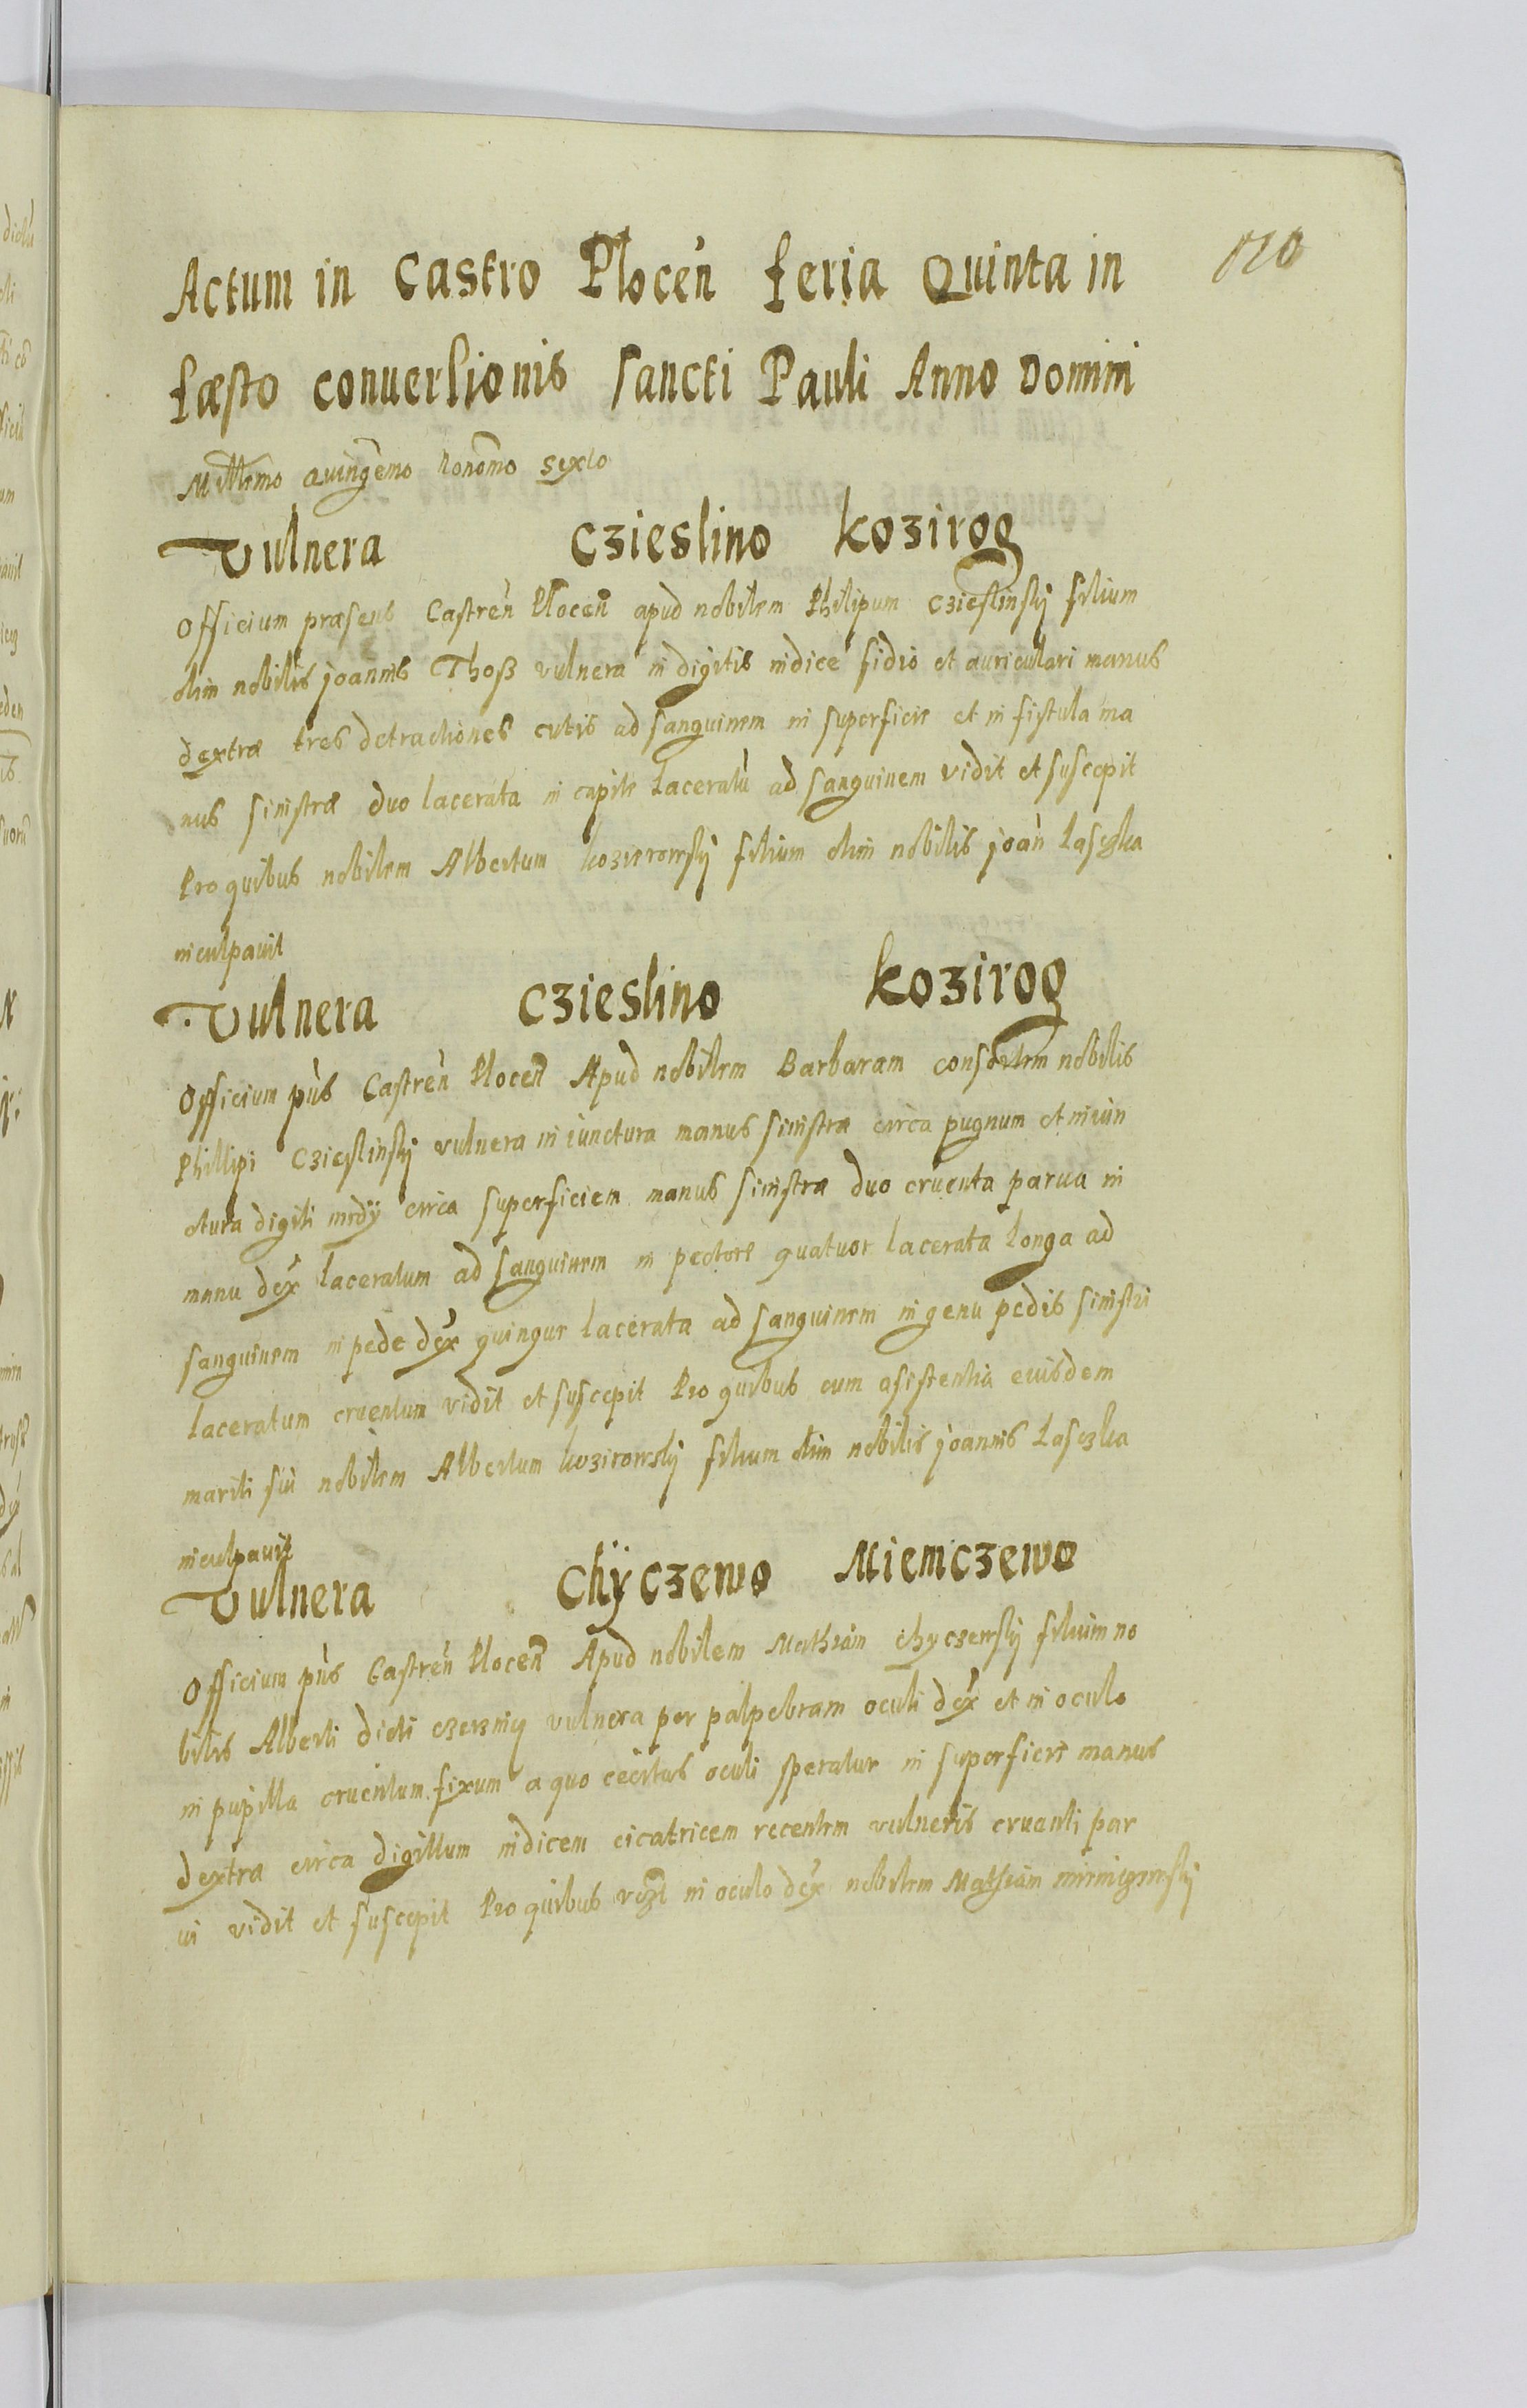 120
Actum in Castro Plocen feria Quinta in
fæsto conuersionis sancti Pauli Anno Domini
Millimo Quingemo Nonomo sexto
Vulnera Czieslino Kozirog
Officium præsens Castren Plocen apud nobilem Philipum Czieslinskij filium
olim nobilis joannis Thoß vulnera in digitis indice fidio et auriculari manus
dextræ tres detractiones cutis ad sanguinem in superficie et in fistula ma
nus sinistræ duo lacerata in capite laceratu ad sanguinem vidit et suscepit
Pro quibus nobilem Albertum kozierowskij filium olim nobilis joan Lasczka
inculpauit
Vulnera Czieslino Kozirog
Officium pns Castren Plocen Apud nobilem Barbaram consortem nobilis
Phillipi Czieslinskij vulnera in iunctura manus sinistra circa pugnum et in iun
ctura digiti medij circa superficiem manus sinistræ duo cruenta parua in
manu dex laceratum ad sanguinem in pectore quatuor lacerata longa ad
sanguinem in pede dex quinque lacerata ad sanguinem in genu pedis sinistri
laceratum cruentum vidit et suscepit Pro quibus cum asistentia eiusdem
mariti sui nobilem Albertum kozirowskij filium olim nobilis joannis Lasczka
inculpauit
Vulnera Chÿczewo Miemczewo
Officium pns Castren Plocen Apud nobilem Mathiam chyczewskij filium no
bilis Alberti dicti vulnera per palpebram oculi dex et in oculo
in pupilla cruentum fixum a quo cecitas oculi speratur in superficie manus
dextra circa digittum indicem cicatricem recentem vulneris cruenti par
ui vidit et suscepit Pro quibus in oculo dex nobilem Mathiam